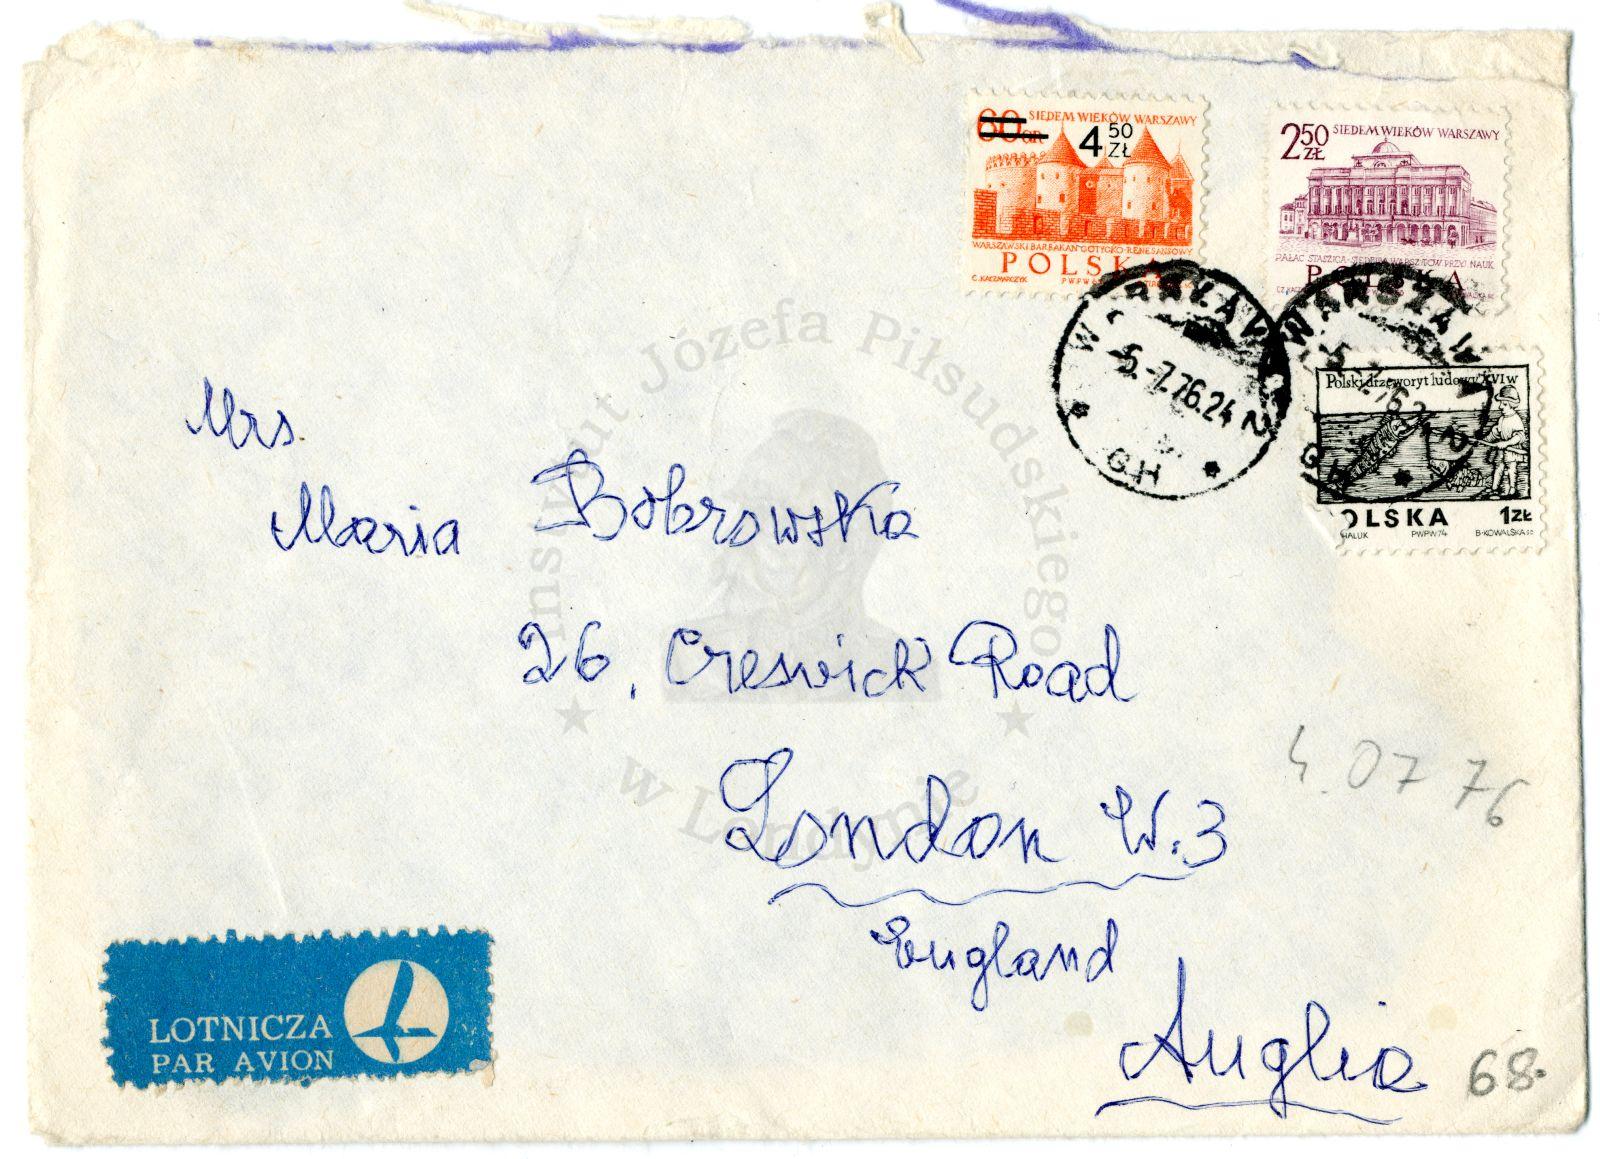 60 GR
SIEDEM WIEKÓW WARSZAWY
4 50 ZŁ
WARSZAWSKI BARBAKAN GOTYCKO-RENESANSOWY
POLSKA
C. KACZMARCZYK
2 50 ZŁ
SIEDEM WIEKÓW WARSZAWY
PAŁAC STASZICA-SIEDZIBA WARSZ. TOW. PRZYJ. NAUK
POLSKA
WARSZAWA
-5.-7.76.24
GH
WARSZAWA
-5.-7.76.24
GH
Polski drzeworyt ludowy XVI w
OLSKA 1ZŁ
HALUK PWPW 74 B·KOWALSKA sc
Instytut Jozefa Piłsudskiego
w Londynie
Mrs.
Maria Bobrowska
26, Creswick Road
London W.3
England
Anglia
4.07 76
68.
LOTNICZA
PAR AVION